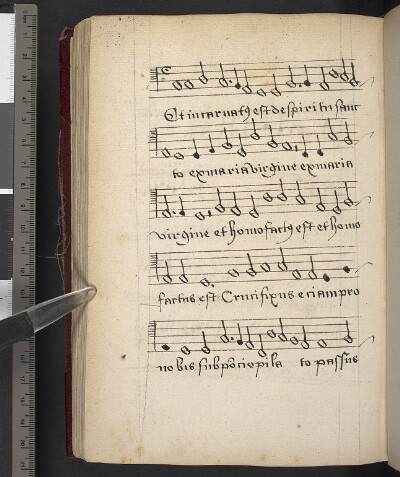 Et incarnatꝰ est de spiritu sanc
to ex maria virgine ex maria
virgine et homo factꝰ est et homo
factus est Crucifixus eciam pro
nobis sub põcio pila to passus